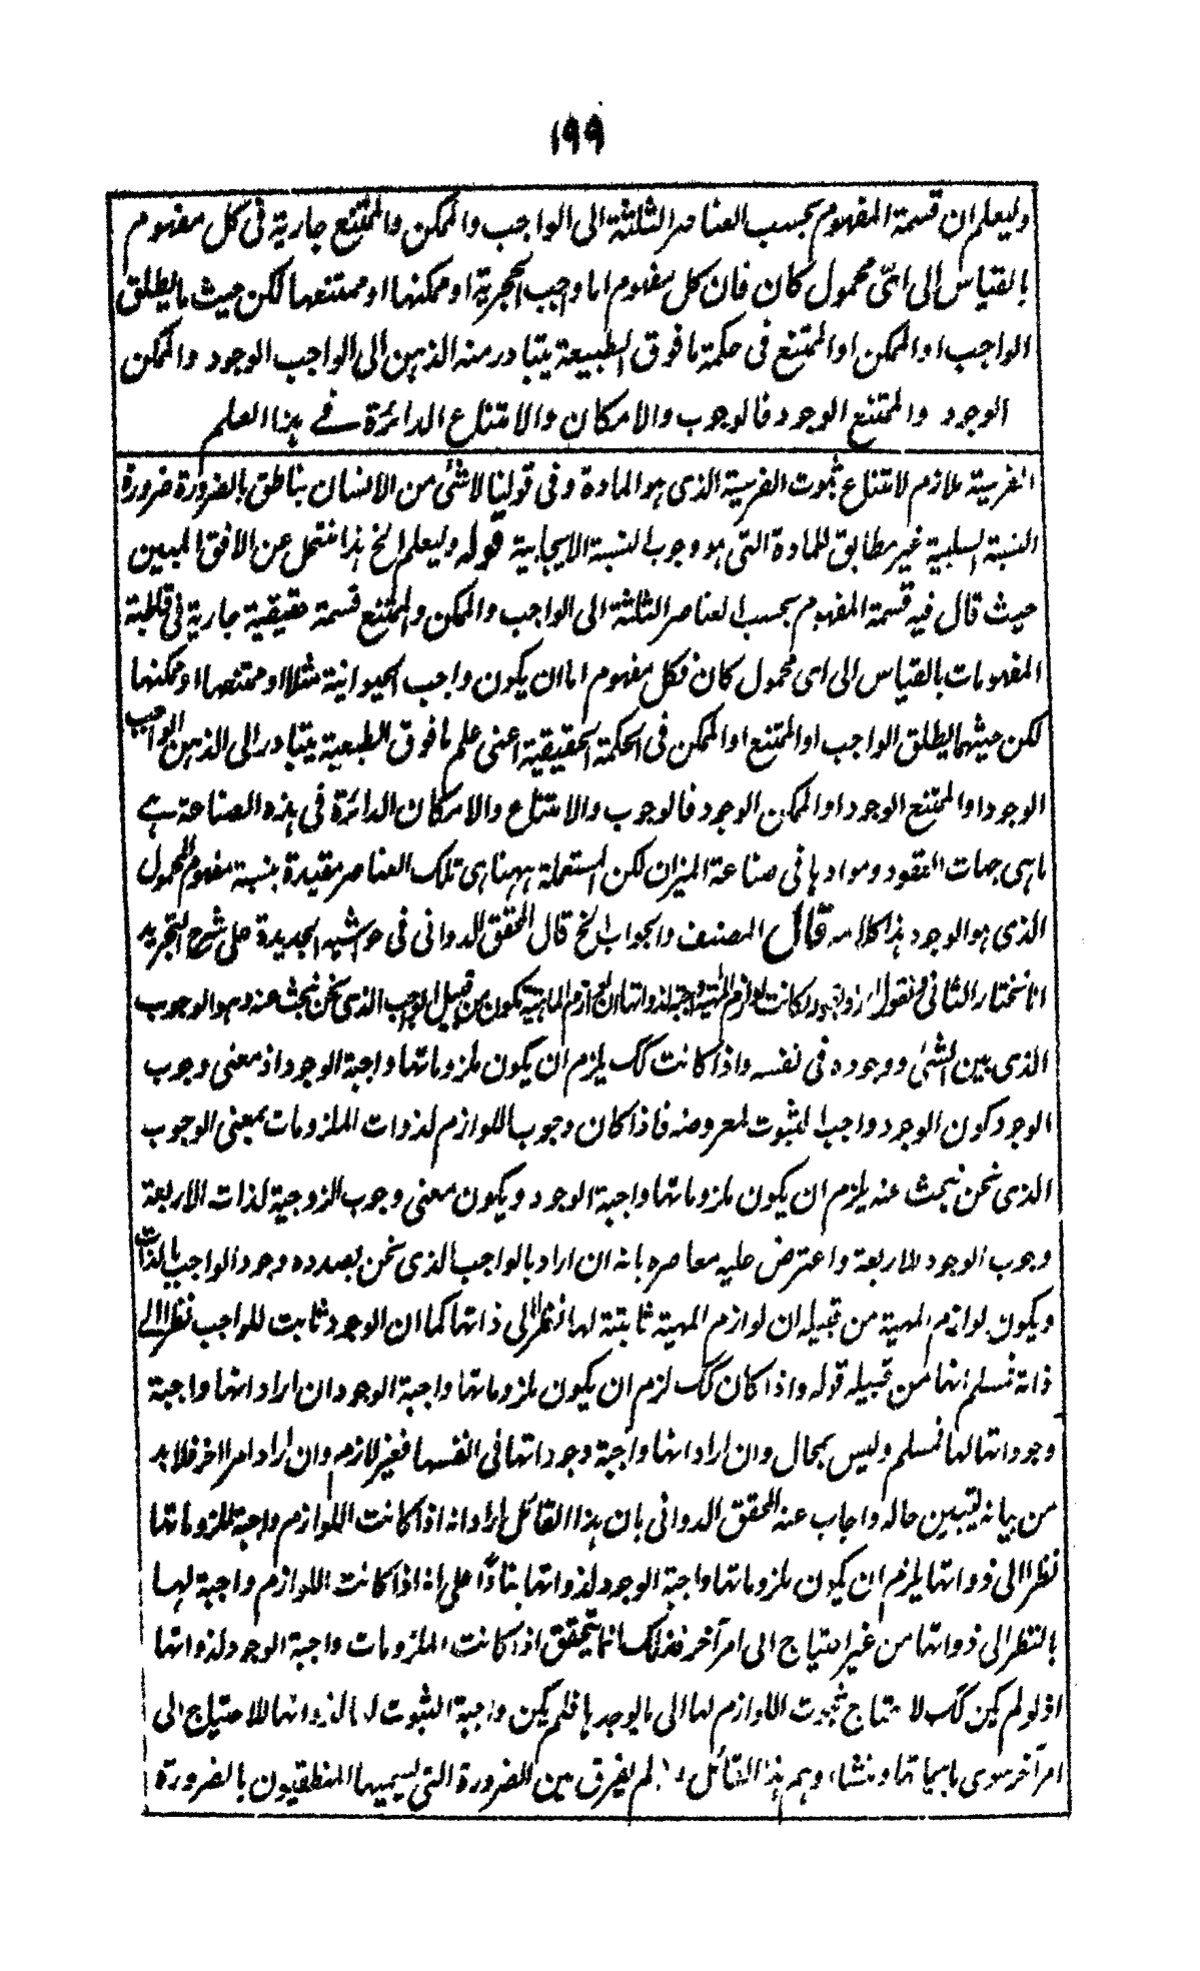 ١٩٩
وليعلم ان قسمة المفهوم بحسب العناصر الثلثة الى الواجب والممكن والممتنع جارية فى كل مفهوم
بالقياس الى اىّ محمول كان فان كل مفهوم اما واجب الحجرية او ممكنها او ممتنعها لكن حيث ما يطلق
الواجب او الممكن او الممتنع فى حكمة ما فوق الطبيعة يتبادر منه الذهن الى الواجب الوجود والممكن
الوجود والممتنع الوجود فالوجوب والامكان والامتناع الدائرة فے هذا العلم
الفرسية ملازم لامتناع ثبوت الفرسية الذى هو المادة وفى قولنا لا شئ من الانسان بناطق بالضرورة ضرورة
النسبة السلبية غير مطابق للمادة التى هو وجوب النسبة الايجابية قوله وليعلم الخ هذا منتحل عن الافق المبين
حيث قال فيه قسمة المفهوم بحسب العناصر الثلثة الى الواجب والممكن والممتنع قسمة حقيقية جارية فى قاطبة
المفهومات بالقياس الى اى محمول كان فكل مفهوم اما ان يكون واجب الحيوانية مثلا او ممتنعها او ممكنها
لكن حيثما يطلق الواجب او الممتنع او الممكن فى الحكمة الحقيقية اعنى علم ما فوق الطبيعية يتبادر الى الذهن الواجب
الوجود او الممتنع الوجود او الممكن الوجود فالوجوب والامتناع والامكان الدائرة فى هذه الصناعة هے
ما هى جهات العقود وموادها فى صناعة الميزان لكن المستعملة ههنا هى تلك العناصر مقيدة بنسبة مفهوم المحمول
الذى هو الوجود هذا كلامه قال المصنف والجواب الخ قال المحقق الدوانى فى حواشيه الجديدة على شرح التجريد
انا نختار الثانى فنقول لوازم الماهية تكون من قبيل الواجب الذى نحن نبحث عنه وهو الوجوب
الذى بين الشئ ووجوده فى نفسه واذا كانت كك يلزم ان يكون ملزوماتها واجبة الوجود اذ معنى وجوب
الوجود كون الوجود واجب الثبوت لمعروضه فاذا كان وجوب اللوازم لذوات الملزومات بمعنى الوجوب
الذى نحن نبحث عنه يلزم ان يكون ملزوماتها واجبة الوجود ويكون معنى وجوب الزوجية لذات الاربعة
وجوب الوجود للاربعة واعترض عليه معاصره بانه ان اراد بالواجب الذى نحن بصدده وجود الواجب بالذات
ويكون لوازم المهية من قبيله ان لوازم المهية ثابتة لها نظرا الى ذاتها كما ان الوجود ثابت للواجب نظرا الے
ذاته فنسلم انها من قبيله قوله واذا كان كك لزم ان يكون ملزوماتها واجبة الوجود ان اراد انها واجبة
وجوداتها لها فنسلم وليس بمحال وان اراد انها واجبة وجوداتها فى انفسها فغير لازم وان اراد امرا اخر فلا بد
من بيانه ليتبين حاله واجاب عنه المحقق الدوانى بان هذا القائل اراد انه اذا كانت اللوازم واجبة لملزوماتها
نظرا الى ذواتها يلزم ان يكون ملزوماتها واجبة الوجود لذواتها بناءً على انه اذا كانت اللوازم واجبة لها
بالنظر الى ذواتها من غير احتياج الى امر آخر فذلك انما يتحقق اذا كانت الملزومات واجبة الوجود لذواتها
اذ لو لم يكن كك لاحتاج ثبوت اللوازم لها الى ما يوجدها فلم يكن واجبة الثبوت لها لذواتها للاحتياج الى
امر آخر سوى ماهياتها ومنشاء وهم هذا القائل انه لم يفرق بين الضرورة التى يسميها المنطقيون بالضرورة